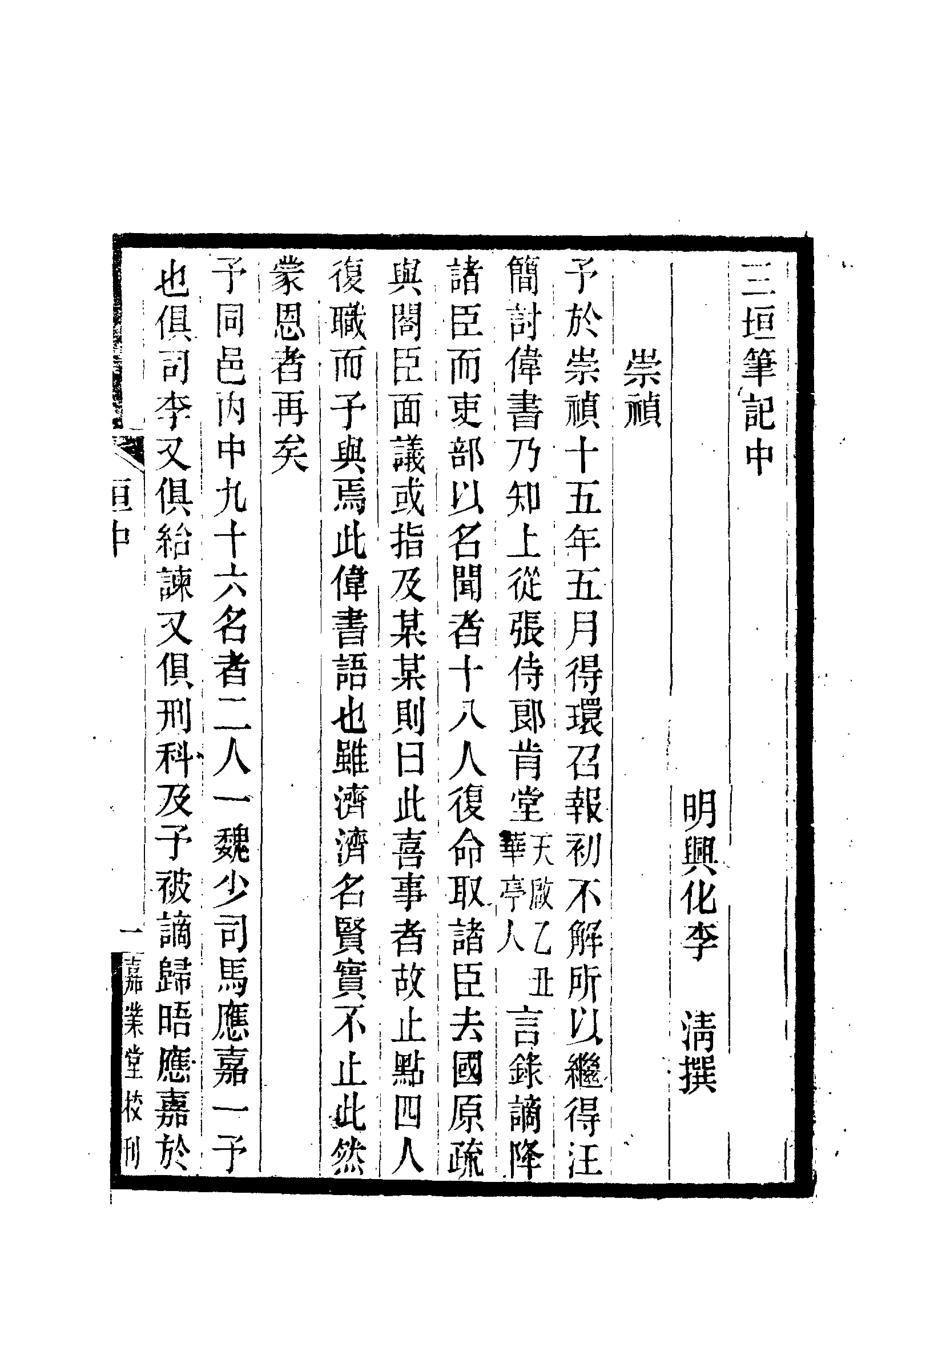 三垣筆記中
明興化李　清撰
崇禎
予於崇禎十五年五月得環召報初不解所以繼得汪
簡討偉書乃知上從張侍郎肯堂天啟乙丑華亭人言錄謫降
諸臣而吏部以名聞者十八人復命取諸臣去國原疏
與閣臣面議或指及某某則曰此喜事者故止點四人
復職而予與焉此偉書語也雖濟濟名賢實不止此然
蒙恩者再矣
予同邑內中九十六名者二人一魏少司馬應嘉一予
也俱司李又俱給諫又俱刑科及予被謫歸晤應嘉於
垣中
一
嘉業堂校刊